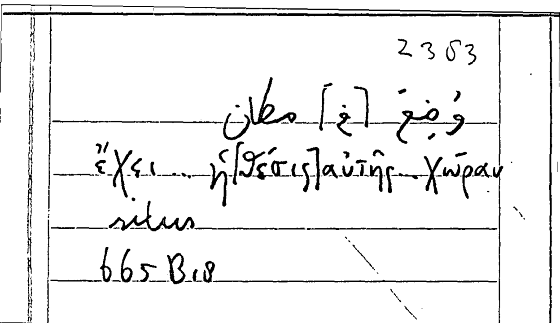 2353
وُضِعَ [في] مكان
ἔχει ... ἡ [θέσις] αὐτῆς ... χώραν
situs
665 B 18